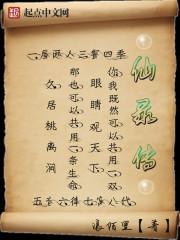 起点中文网
一房两人三餐四季
你我既然可以共用一双
眼睛观天下
那也可以共用一条生命
久居桃离涧
五音六律七八代
仙传
佰里【著】